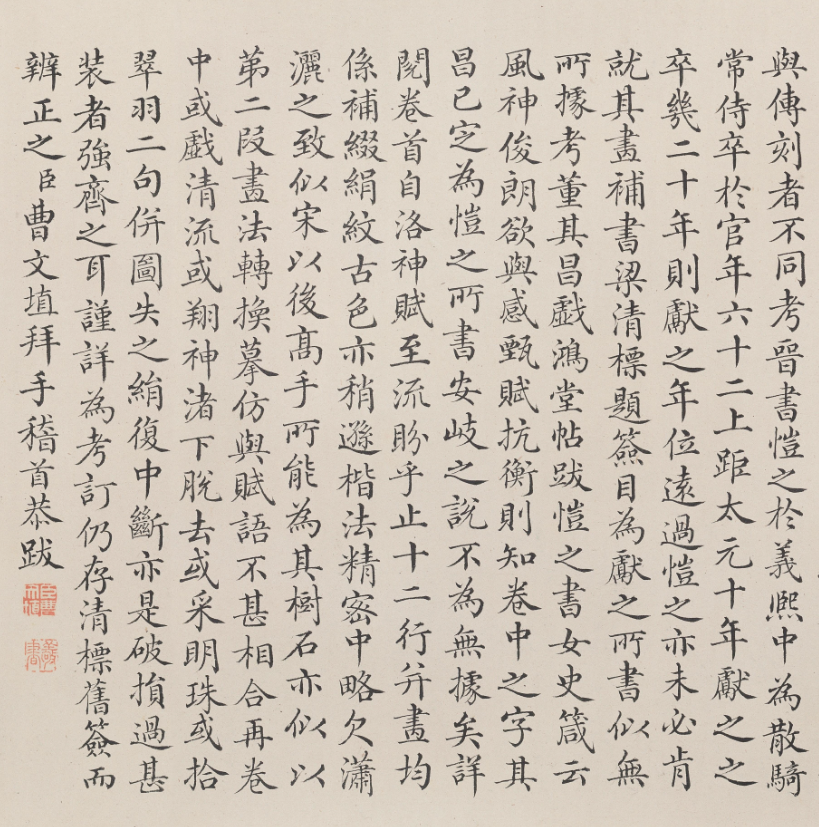 與傳刻者不同考晉書愷之於義熈中為散騎
常侍卒於官年六十二上距太元十年獻之之
卒㡬二十年則獻之年位遠過愷之亦未必肯
就其畫補書梁清標題籤目為獻之所書似無
所據考董其昌戲鴻堂帖跋愷之書女史箴云
風神俊朗欲與感甄賦抗衡則知卷中之字其
昌已定為愷之所書安岐之說不為無據矣詳
閱卷首自洛神賦至流盼乎止十二行并畫均
係補綴絹紋古色亦稍遜楷法精密中略欠瀟
灑之致似宋以後高手所能為其樹石亦似以
第二段畫法轉換摹仿與賦語不甚相合再卷
中或戲清流或翔神渚下脫去或采明珠或拾
翠羽二句併圖失之絹復中斷亦是破損過甚
裝者強齊之耳謹詳為考訂仍存清標舊簽而
辨正之臣曹文埴拜手稽首恭跋